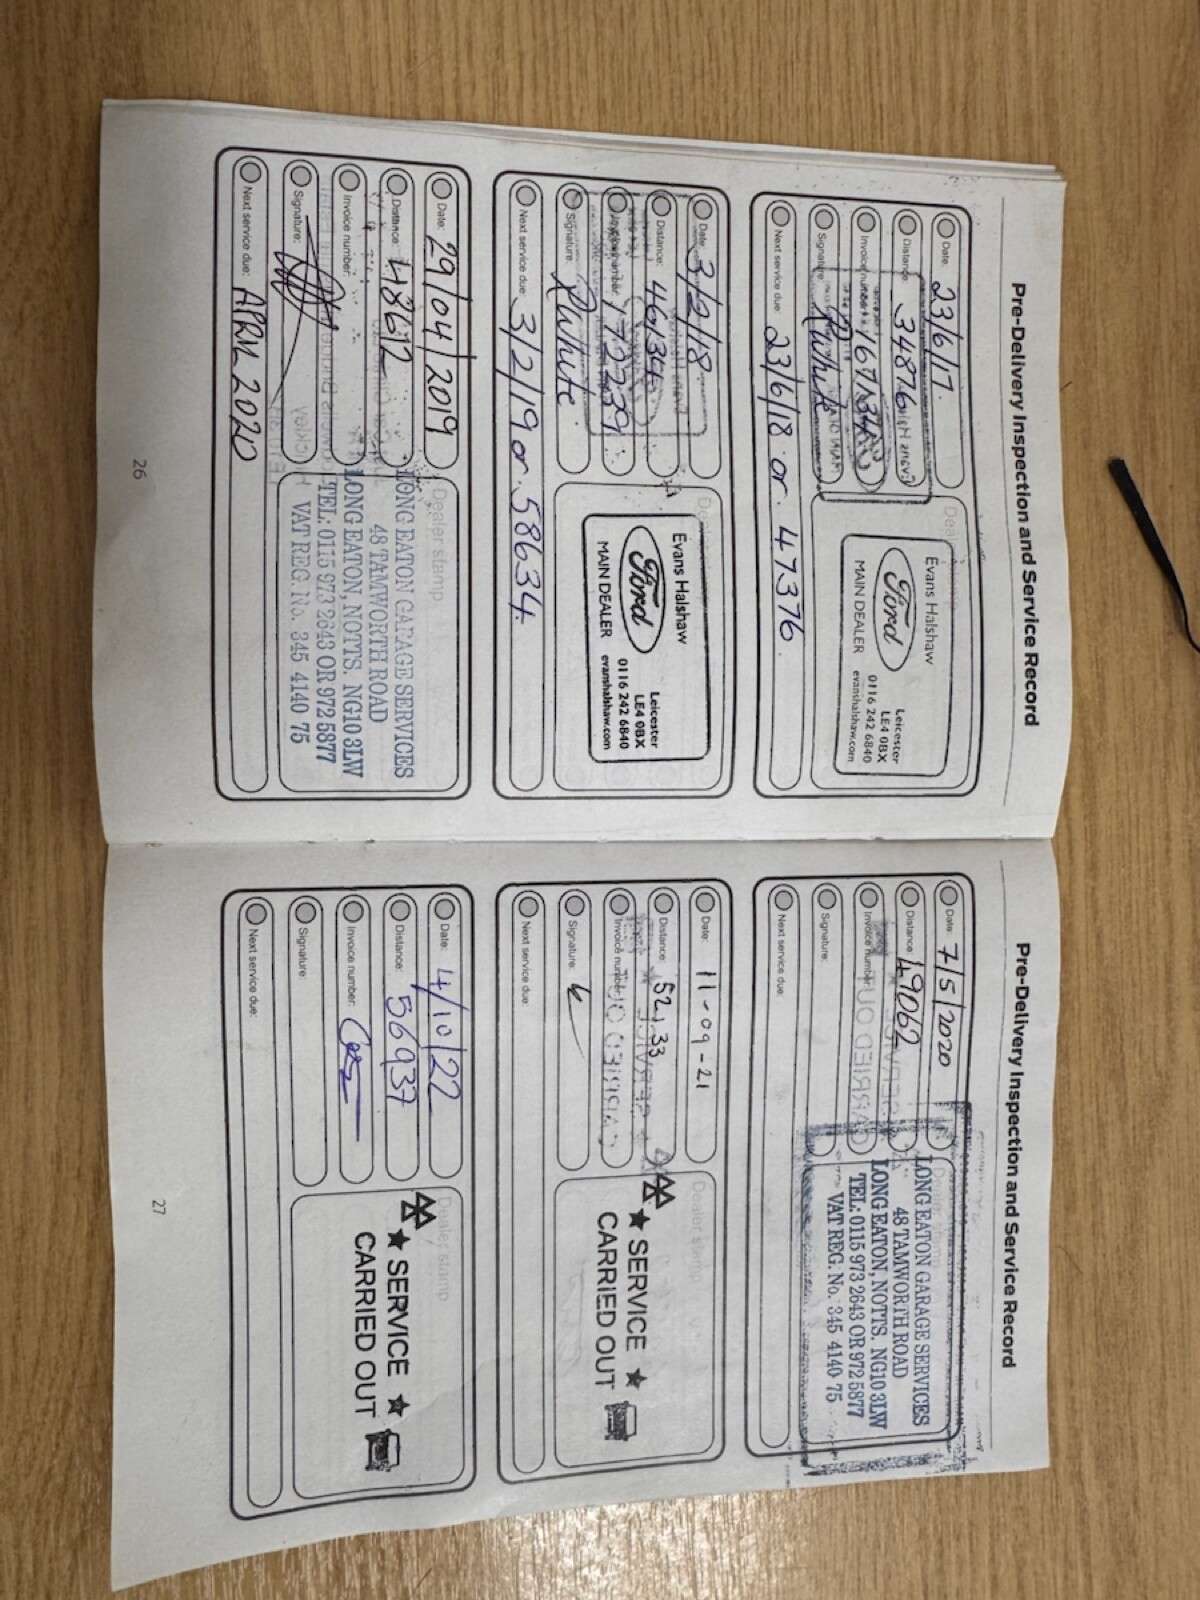 Pre-Delivery Inspection and Service Record
Date: 23/6/17.
Distance: 34876
Invoice number: 167134
Signature: RWhite
Next service due: 23/6/18 or 47376
Evans Halshaw
Ford
MAIN DEALER
Leicester
LE4 0BX
0116 242 6840
evanshalshaw.com
Date: 3/2/18
Distance: 46134
Invoice number: 172239
Signature: RWhite
Next service due: 3/2/19 or 58634.
Evans Halshaw
Ford
MAIN DEALER
Leicester
LE4 0BX
0116 242 6840
evanshalshaw.com
Date: 29/04/2019
Distance: 48612
Invoice number:
Signature:
Next service due: APRIL 2020
Dealer stamp
LONG EATON GARAGE SERVICES
48 TAMWORTH ROAD
LONG EATON, NOTTS. NG10 3LW
TEL: 0115 973 2643 OR 972 5877
VAT REG. No. 345 4140 75
26
Pre-Delivery Inspection and Service Record
Date: 7/5/2020
Distance: 49062
Invoice number:
Signature:
Next service due:
LONG EATON GARAGE SERVICES
48 TAMWORTH ROAD
LONG EATON, NOTTS. NG10 3LW
TEL: 0115 973 2643 OR 972 5877
VAT REG. No. 345 4140 75
Date: 11-09-21
Distance: 52133
Invoice number:
Signature:
Next service due:
Dealer stamp
★ SERVICE ★
CARRIED OUT
Date: 4/10/22
Distance: 56937
Invoice number:
Signature:
Next service due:
Dealer stamp
★ SERVICE ★
CARRIED OUT
27